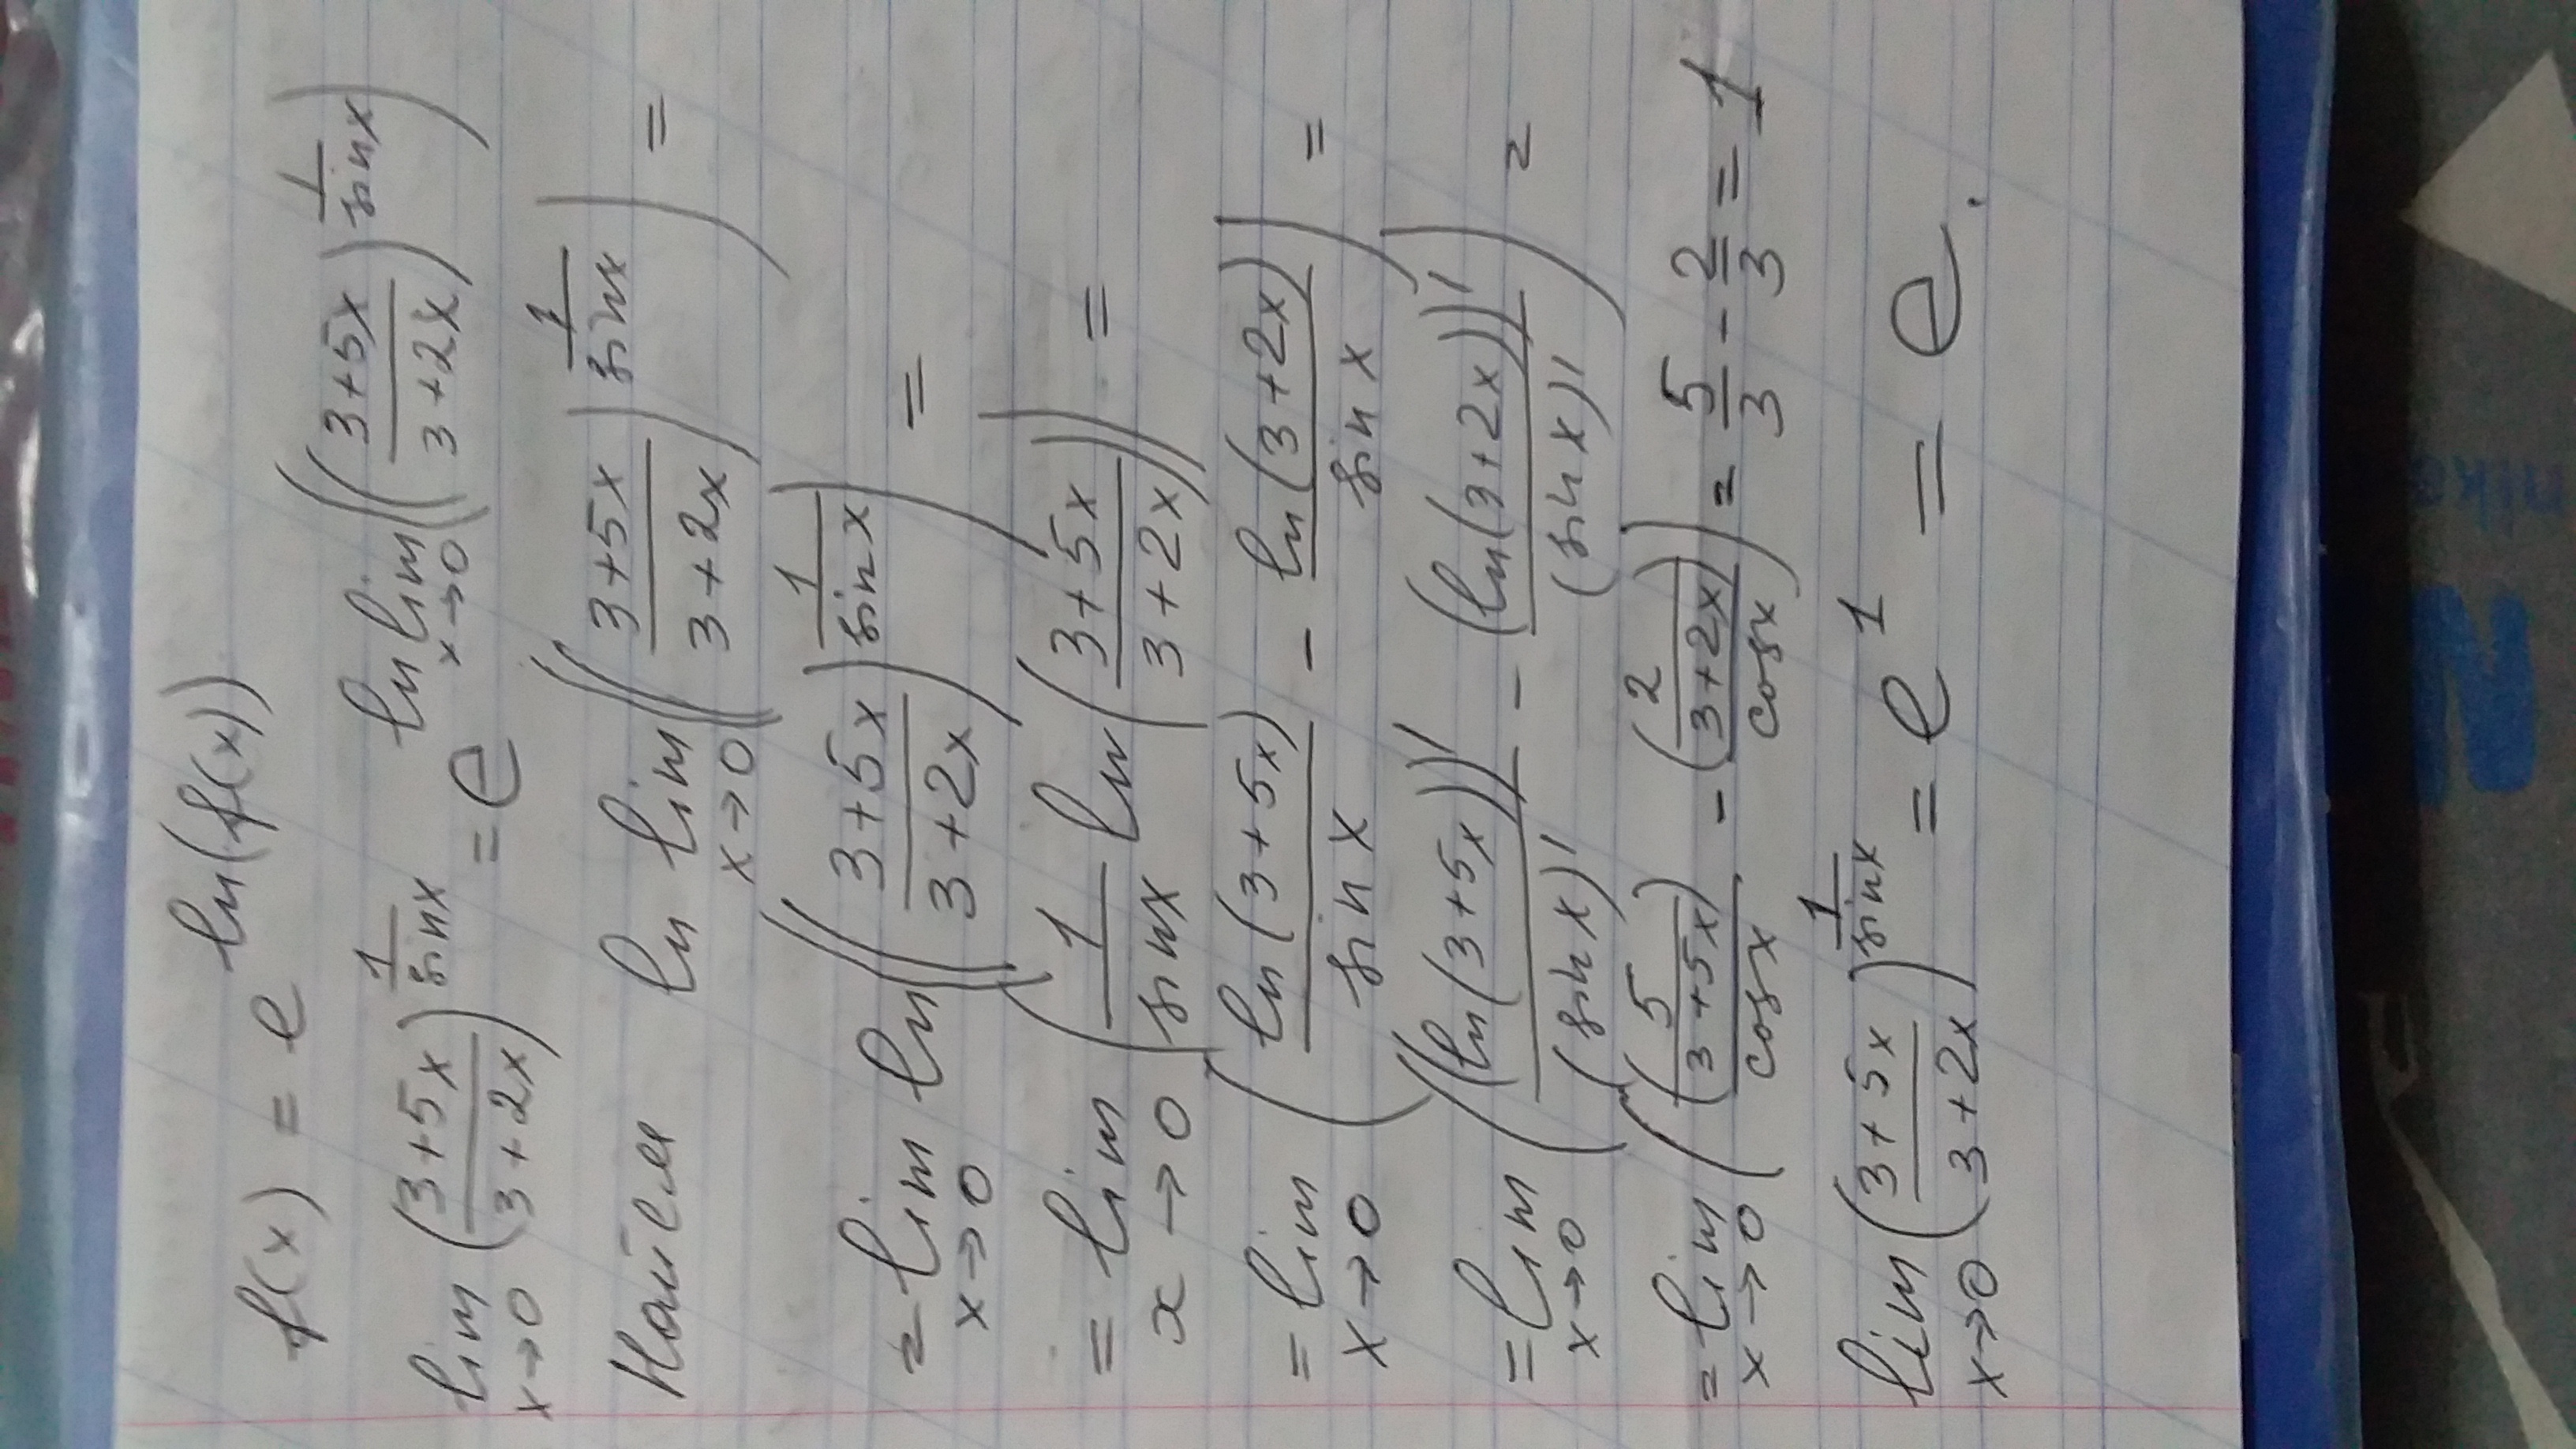 f(x) = e^{ln(f(x))}
lim_{x→0} ((3+5x)/(3+2x))^{1/sinx} = e^{ln lim_{x→0} (((3+5x)/(3+2x))^{1/sinx})}
Найдем ln lim_{x→0} (((3+5x)/(3+2x))^{1/sinx}) =
= lim_{x→0} ln (((3+5x)/(3+2x))^{1/sinx}) =
= lim_{x→0} (1/sinx ln((3+5x)/(3+2x))) =
= lim_{x→0} (ln(3+5x)/sinx - ln(3+2x)/sinx) =
= lim_{x→0} ((ln(3+5x))'/(sinx)' - (ln(3+2x))'/(sinx)') =
= lim_{x→0} ((5/(3+5x))/cosx - (2/(3+2x))/cosx) = 5/3 - 2/3 = 1
lim_{x→0} ((3+5x)/(3+2x))^{1/sinx} = e^1 = e.
nike